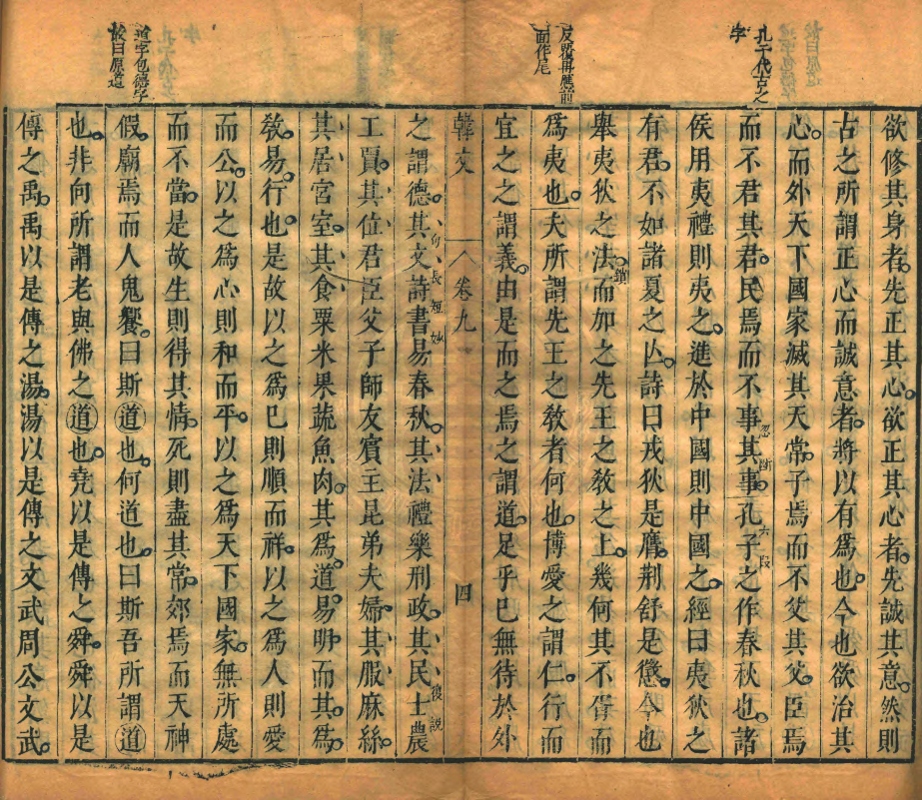 孔子代古之
字
反覆再應前
面作尾
道字包德字
故曰原道
欲修其身者。先正其心。欲正其心者。先誠其意。然則
古之所謂正心而誠意者。將以有爲也。今也欲治其
心。而外天下國家滅其天常。子焉而不父其父。臣焉
而不君其君。民焉而不事其事。孔子之作春秋也。諸
忽斷
六段
侯用夷禮則夷之。進於中國則中國之。經曰夷狄之
有君。不如諸夏之亾。詩曰戎狄是膺。荆舒是懲。今也
舉夷狄之法。而加之先王之敎之上。幾何其不胥而
鎖
爲夷也。夫所謂先王之敎者何也。博愛之謂仁。行而
宜之之謂義。由是而之焉之謂道。足乎已無待於外
韓文 卷九 四
之謂德。其文詩書易春秋。其法禮樂刑政。其民士農
句長短妙
後説
工賈。其位君臣父子師友賓主昆弟夫婦。其服麻絲。
其居宮室。其食粟米果蔬魚肉。其爲道易明。而其爲
敎。易行也。是故以之爲已則順而祥。以之爲人則愛
而公。以之爲心則和而平。以之爲天下國家。無所處
而不當。是故生則得其情。死則盡其常。郊焉而天神
假。廟焉而人鬼饗。曰斯道也。何道也。曰斯吾所謂道
也。非向所謂老與佛之道也。堯以是傳之舜。舜以是
傳之禹。禹以是傳之湯。湯以是傳之文武周公。文武